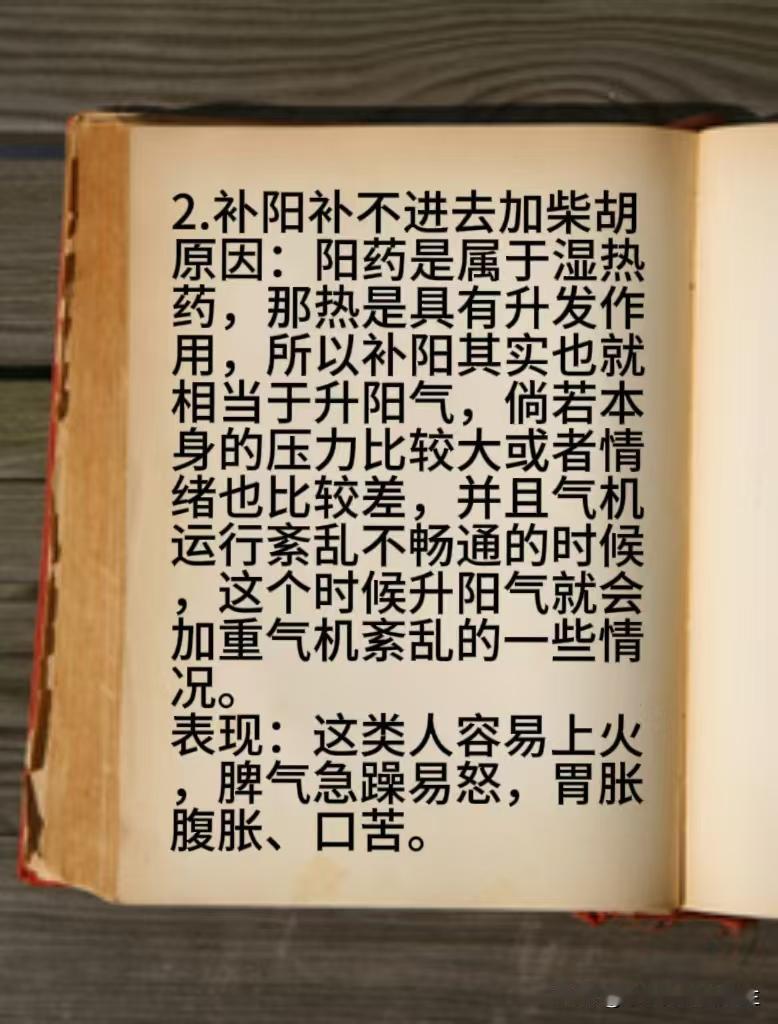 2.补阳补不进去加柴胡
原因：阳药是属于湿热
药，那热是具有升发作
用，所以补阳其实也就
相当于升阳气，倘若本
身的压力比较大或者情
绪也比较差，并且气机
运行紊乱不畅通的时候
，这个时候升阳气就会
加重气机紊乱的一些情
况。
表现：这类人容易上火
，脾气急躁易怒，胃胀
腹胀、口苦。